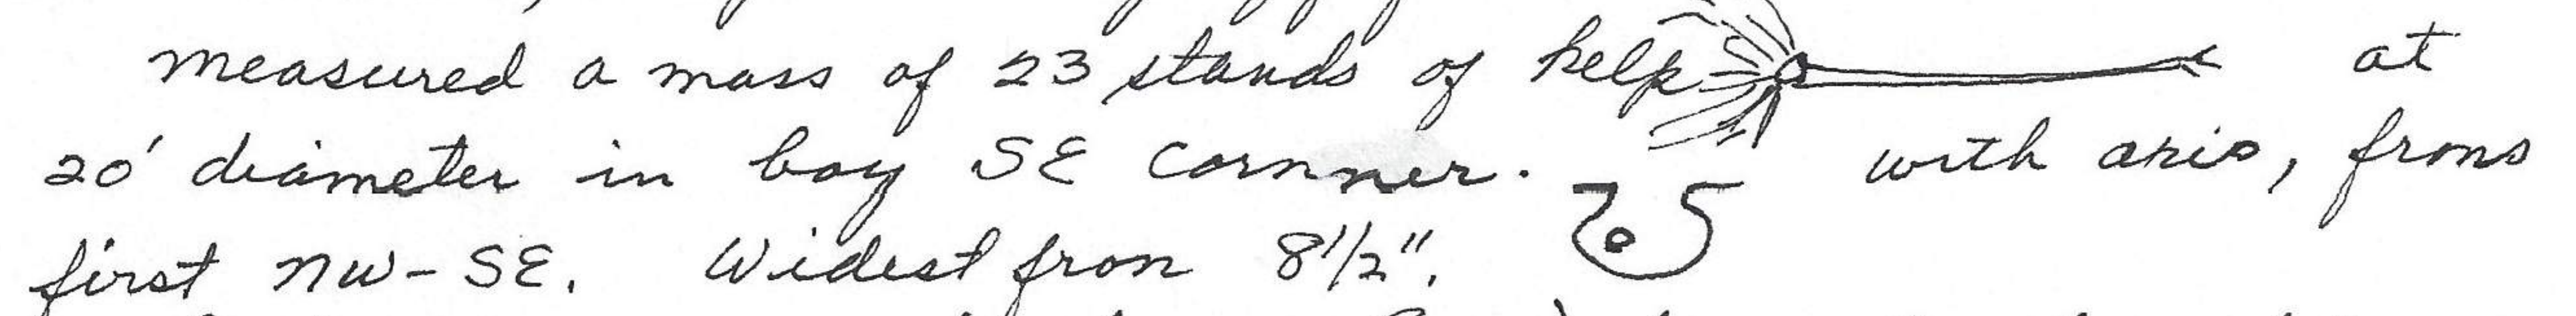 measured a mass of 23 stands of kelp at
20' diameter in bay SE cornner. with axis, frons
first NW-SE. Widest fron 8 1/2".